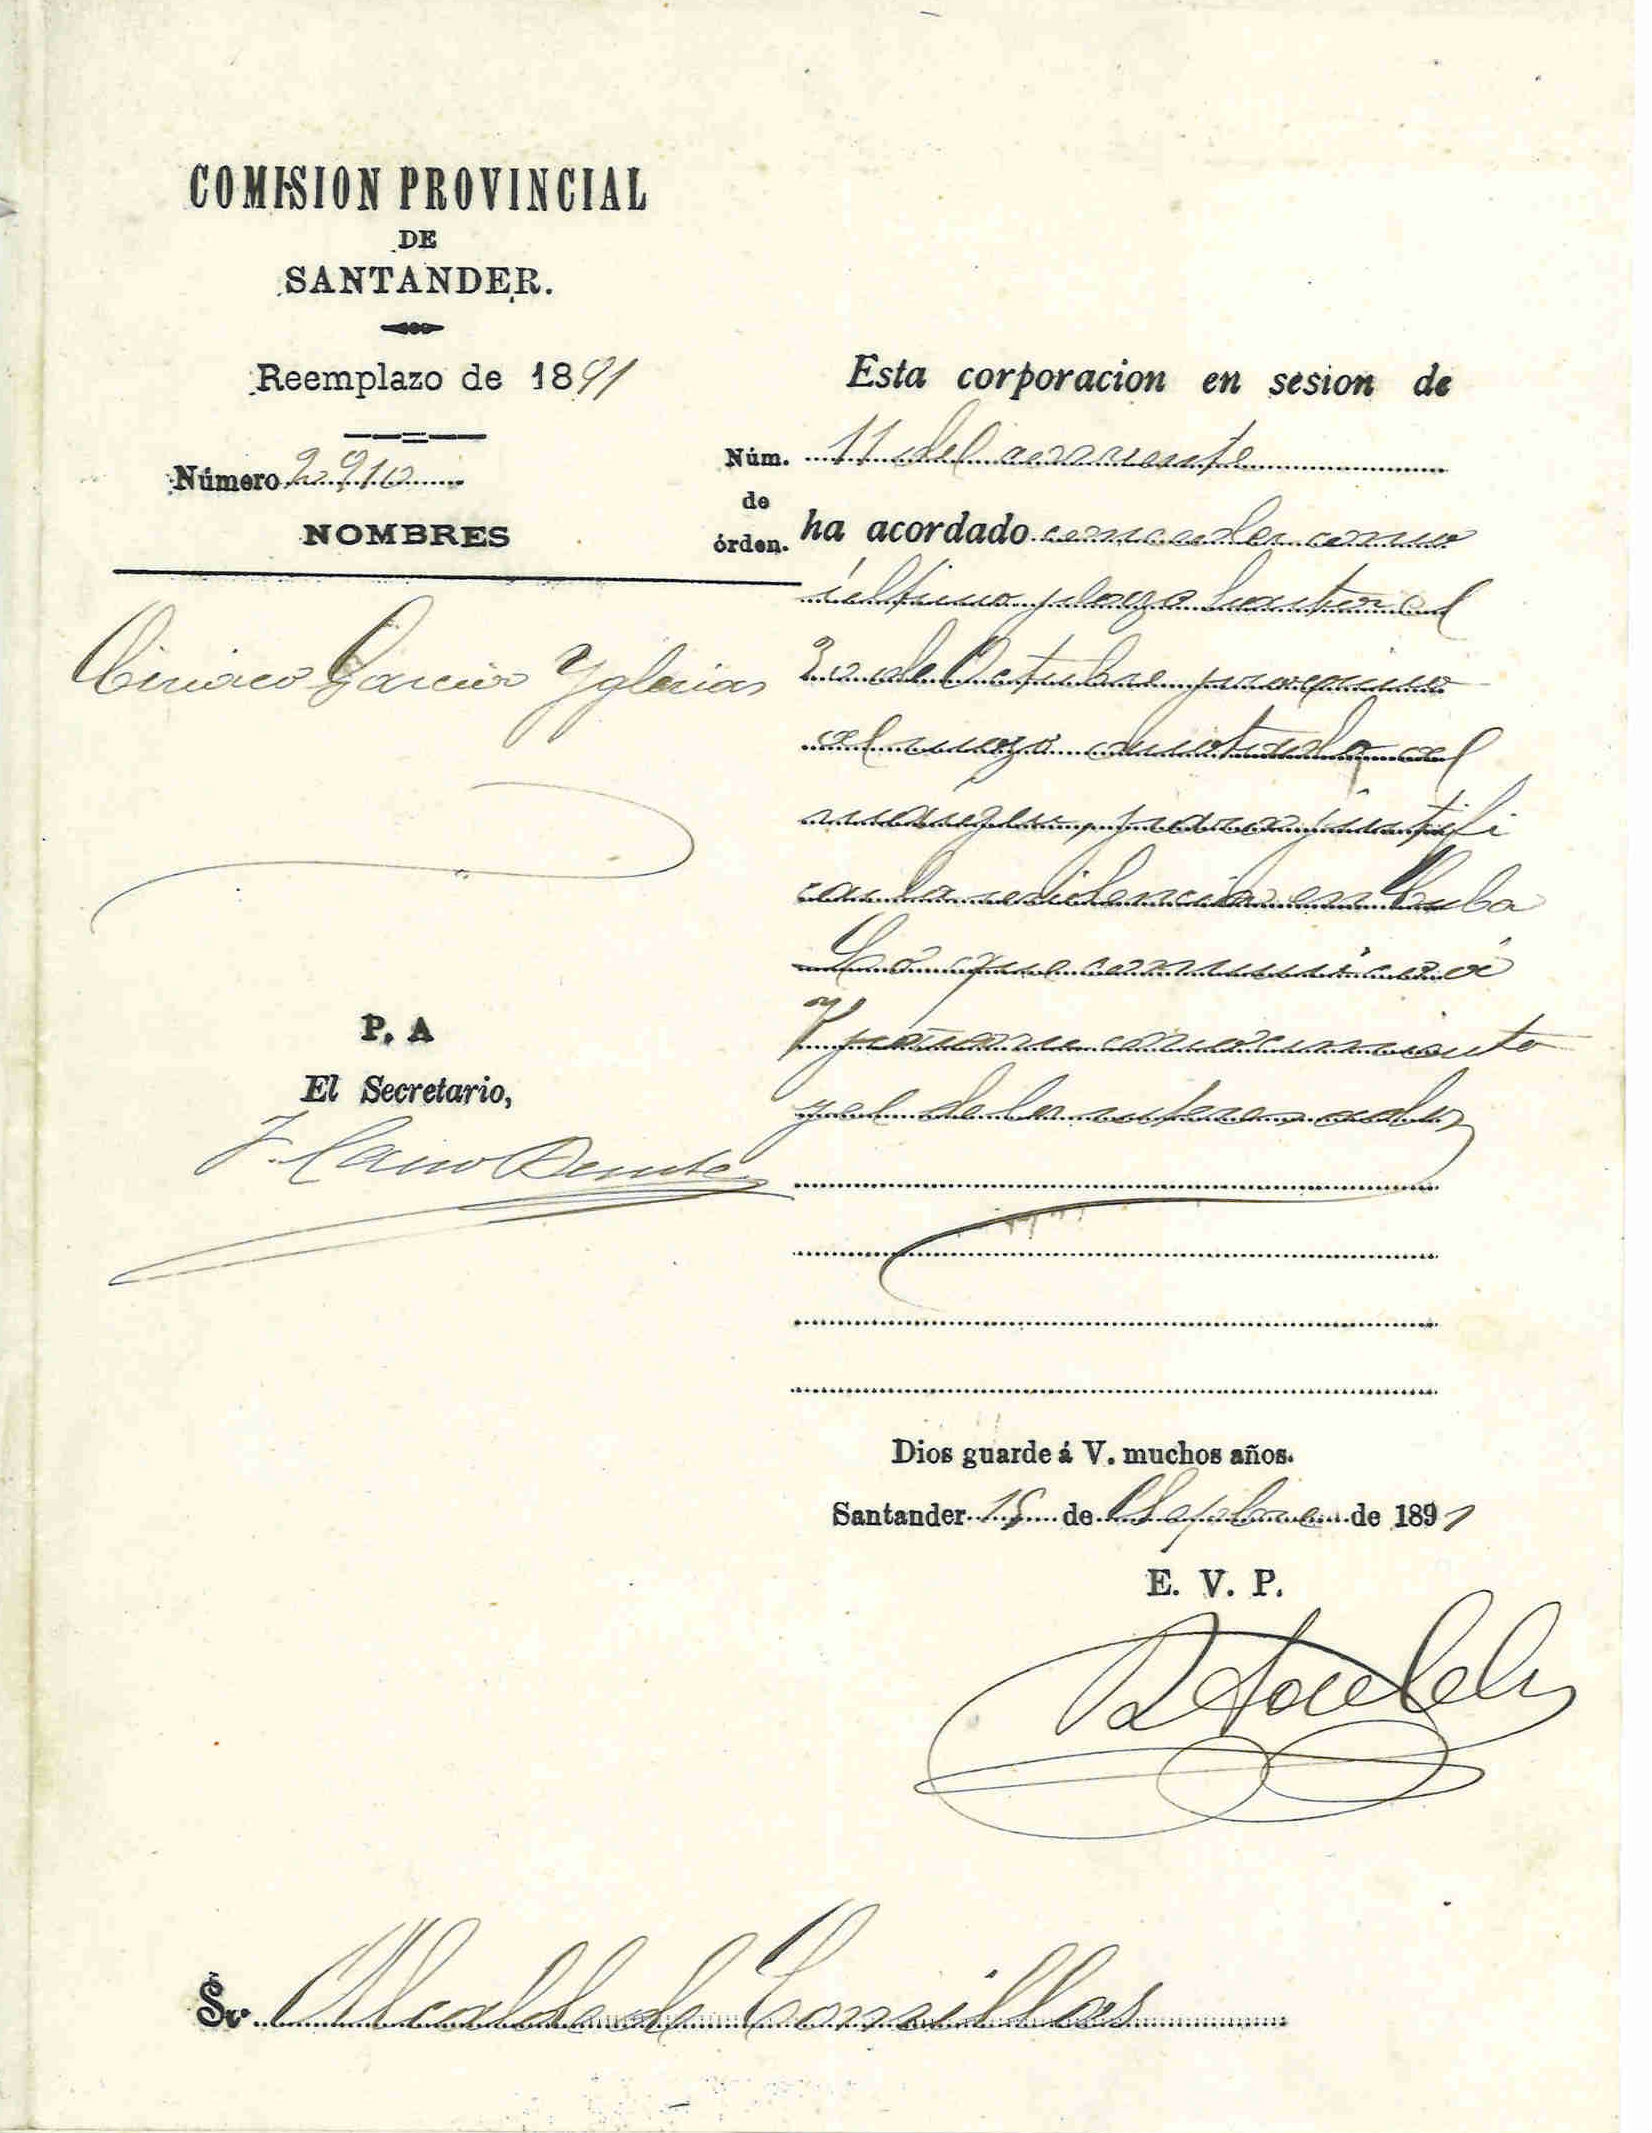 COMISION PROVINCIAL
DE
SANTANDER.
Reemplazo de 1891
Número 2910
NOMBRES
Núm.
de
órden.
Ciriaco Garcia Yglesias
P. A
El Secretario,
Esta corporacion en sesion de
11 del corriente
ha acordado conceder como
último plazo hasta el
30 de Octubre proximo
al mozo anotado al
márgen, para justifi
car la residencia en Cuba
Lo que comunico á
V para su conocimiento
y el de los interesados
Dios guarde á V. muchos años.
Santander 15 de Sepbre de 1891
E. V. P.
Sr. Alcalde de Comillas